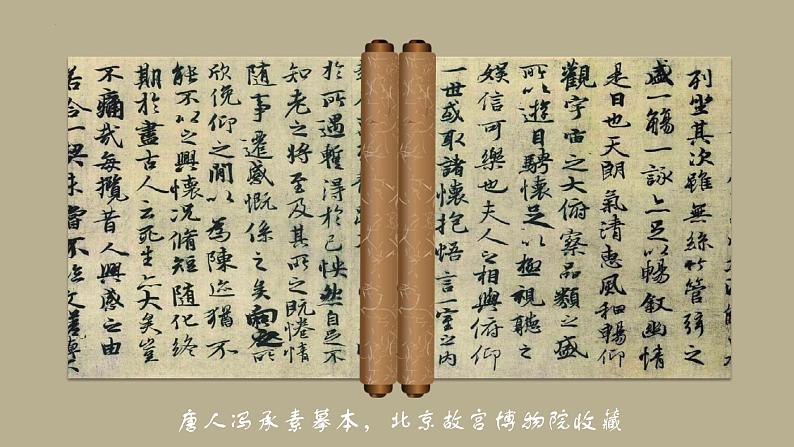 列坐其次雖無絲竹管弦之
盛一觴一詠亦足以暢叙幽情
是日也天朗氣清惠風和暢仰
觀宇宙之大俯察品類之盛
所以遊目騁懷足以極視聽之
娛信可樂也夫人之相與俯仰
一世或取諸懷抱悟言一室之内
於所遇蹔得於己怏然自足
知老之將至及其所之既惓情
隨事遷感慨係之矣向之所
欣俛仰之閒以為陳迹猶不
能不以之興懷况脩短隨化終
期於盡古人云死生亦大矣豈
不痛哉每攬昔人興感之由
若合一契未嘗不臨文嗟悼不
唐人冯承素摹本，北京故宫博物院收藏